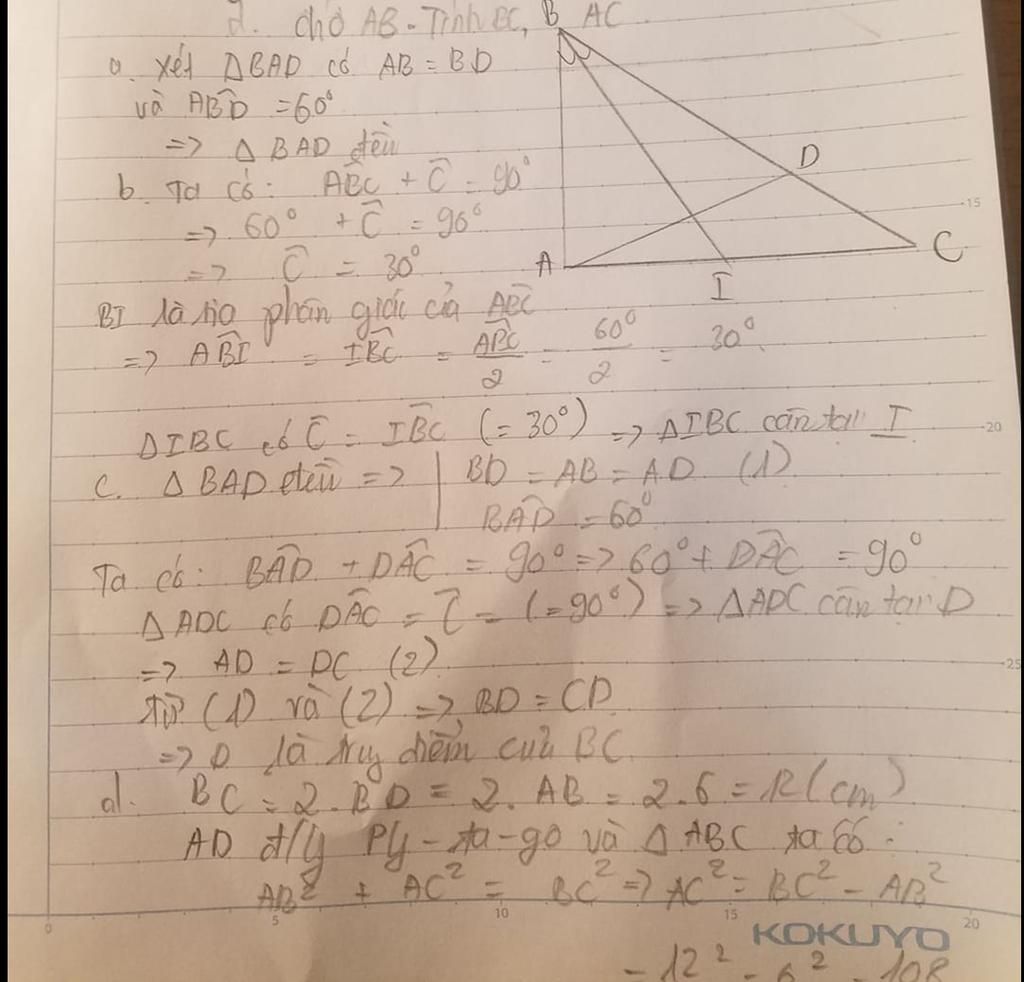 d. cho AB - Tính BC, AC
B
a. xét ΔBAD có AB = BD
và ABD̂ = 60°
=> Δ BAD đều
D
b. Ta có: ABĈ + Ĉ = 90°
15
=> 60° + Ĉ = 90°
=> Ĉ = 30°
A
I
C
BI là tia phân giác của ABĈ
=> ABÎ = IBĈ = ABĈ/2 = 60°/2 = 30°
ΔIBC có Ĉ = IBĈ (= 30°) => ΔIBC cân tại I
20
c. Δ BAD đều => | BD = AB = AD (1)
BAD̂ = 60°
Ta có: BAD̂ + DAĈ = 90° => 60° + DAĈ = 90°
Δ ADC có DAĈ = Ĉ = (= 90°) => ΔADC cân tại D
=> AD = DC (2)
25
từ (1) và (2) => BD = CD
=> D là trug điểm của BC
d. BC = 2. BD = 2. AB = 2.6 = 12 (cm)
AD đ/lý Py-ta-go và Δ ABC ta có:
AB² + AC² = BC² => AC² = BC² - AB²
0 5 10 15 20
KOKUYO
= 12² - 6² = 108